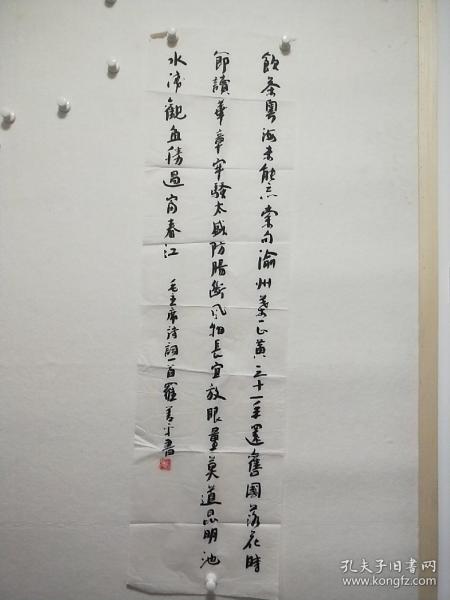 飲茶粤海未能忘索句渝州葉正黄三十一年還舊國落花時
節讀華章牢騷太盛防腸斷風物長宜放眼量莫道昆明池
水淺觀魚勝過富春江 毛主席詩詞一首羅善平書
孔夫子旧书网
www.kongfz.com